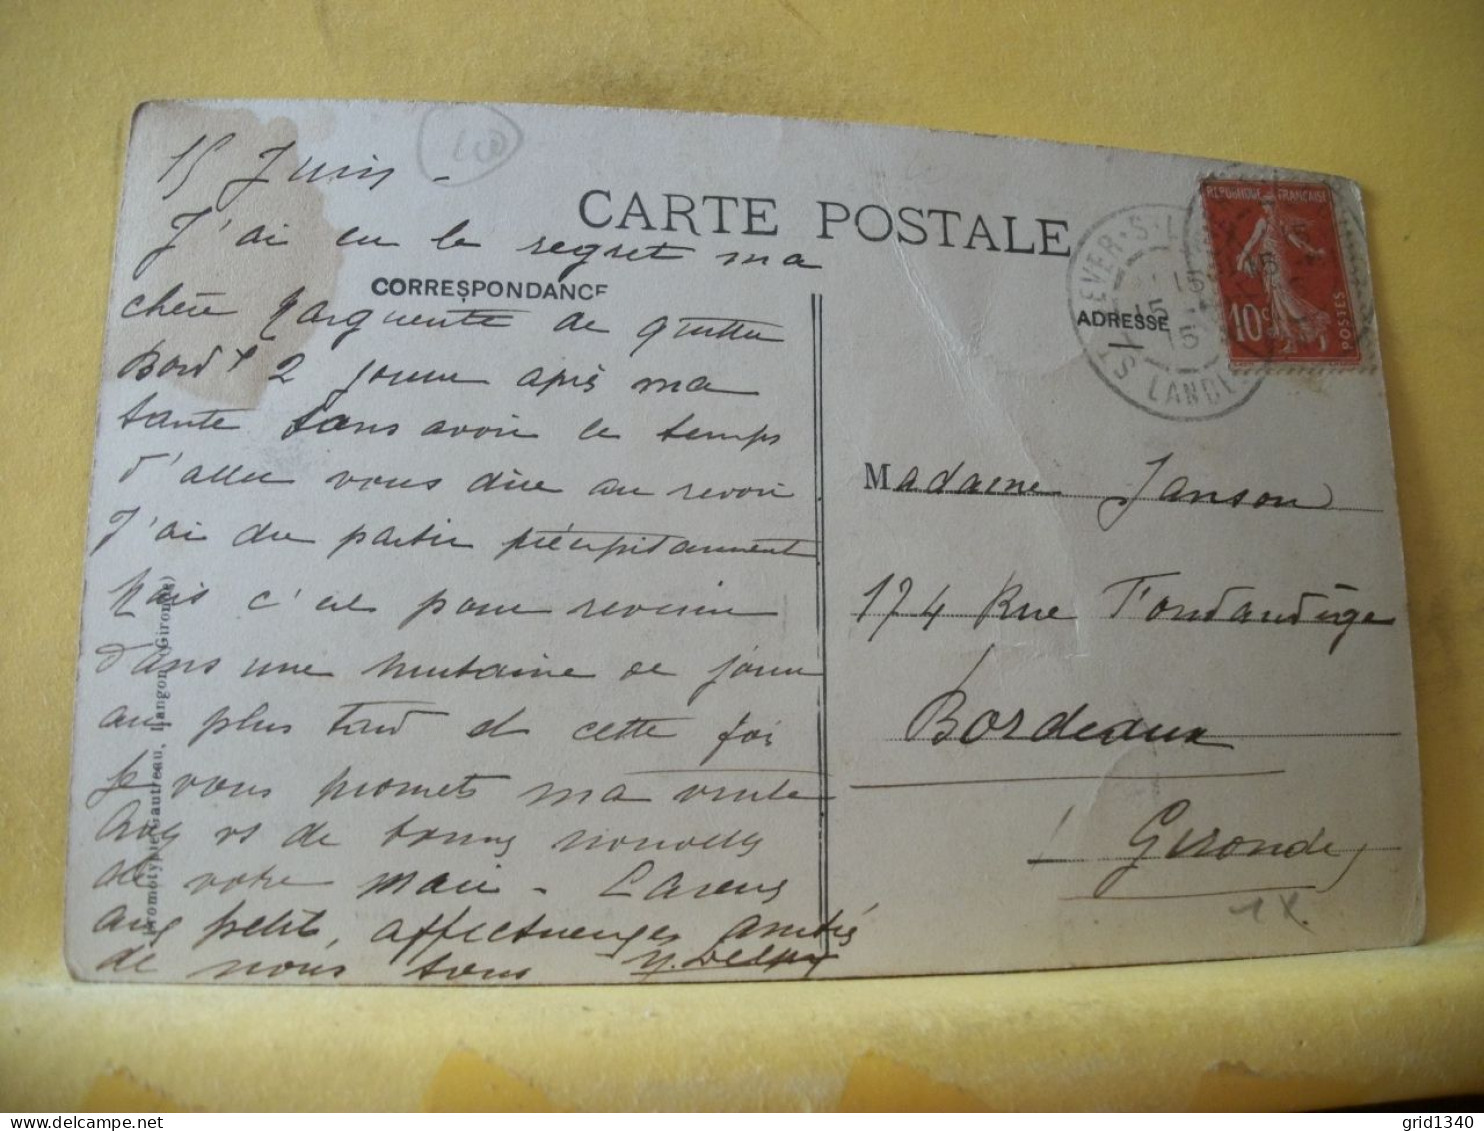 15 Juin -
CARTE POSTALE
J'ai eu le regret ma
CORRESPONDANCE
chère Marguerite de quitter
Bordx 2 jours après ma
tante sans avoir le temps
d'aller vous dire au revoir
J'ai du partir précipitamment
Mais c'est pour revenir
dans une huitaine de jours
au plus tard et cette fois
je vous promets ma visite
Avez vs de bonnes nouvelles
de votre mari - Caresses
aux petits, affectueuses amitiés
de nous tous Y. Delpy
Phromotypie Gautreau, Langon (Gironde)
REPUBLIQUE FRANÇAISE
10c
POSTES
ST SEVER-S-L
15
15
LANDES
ADRESSE
Madame Janson
174 Rue Fondaudège
Bordeaux
Gironde
1X.
grid1340